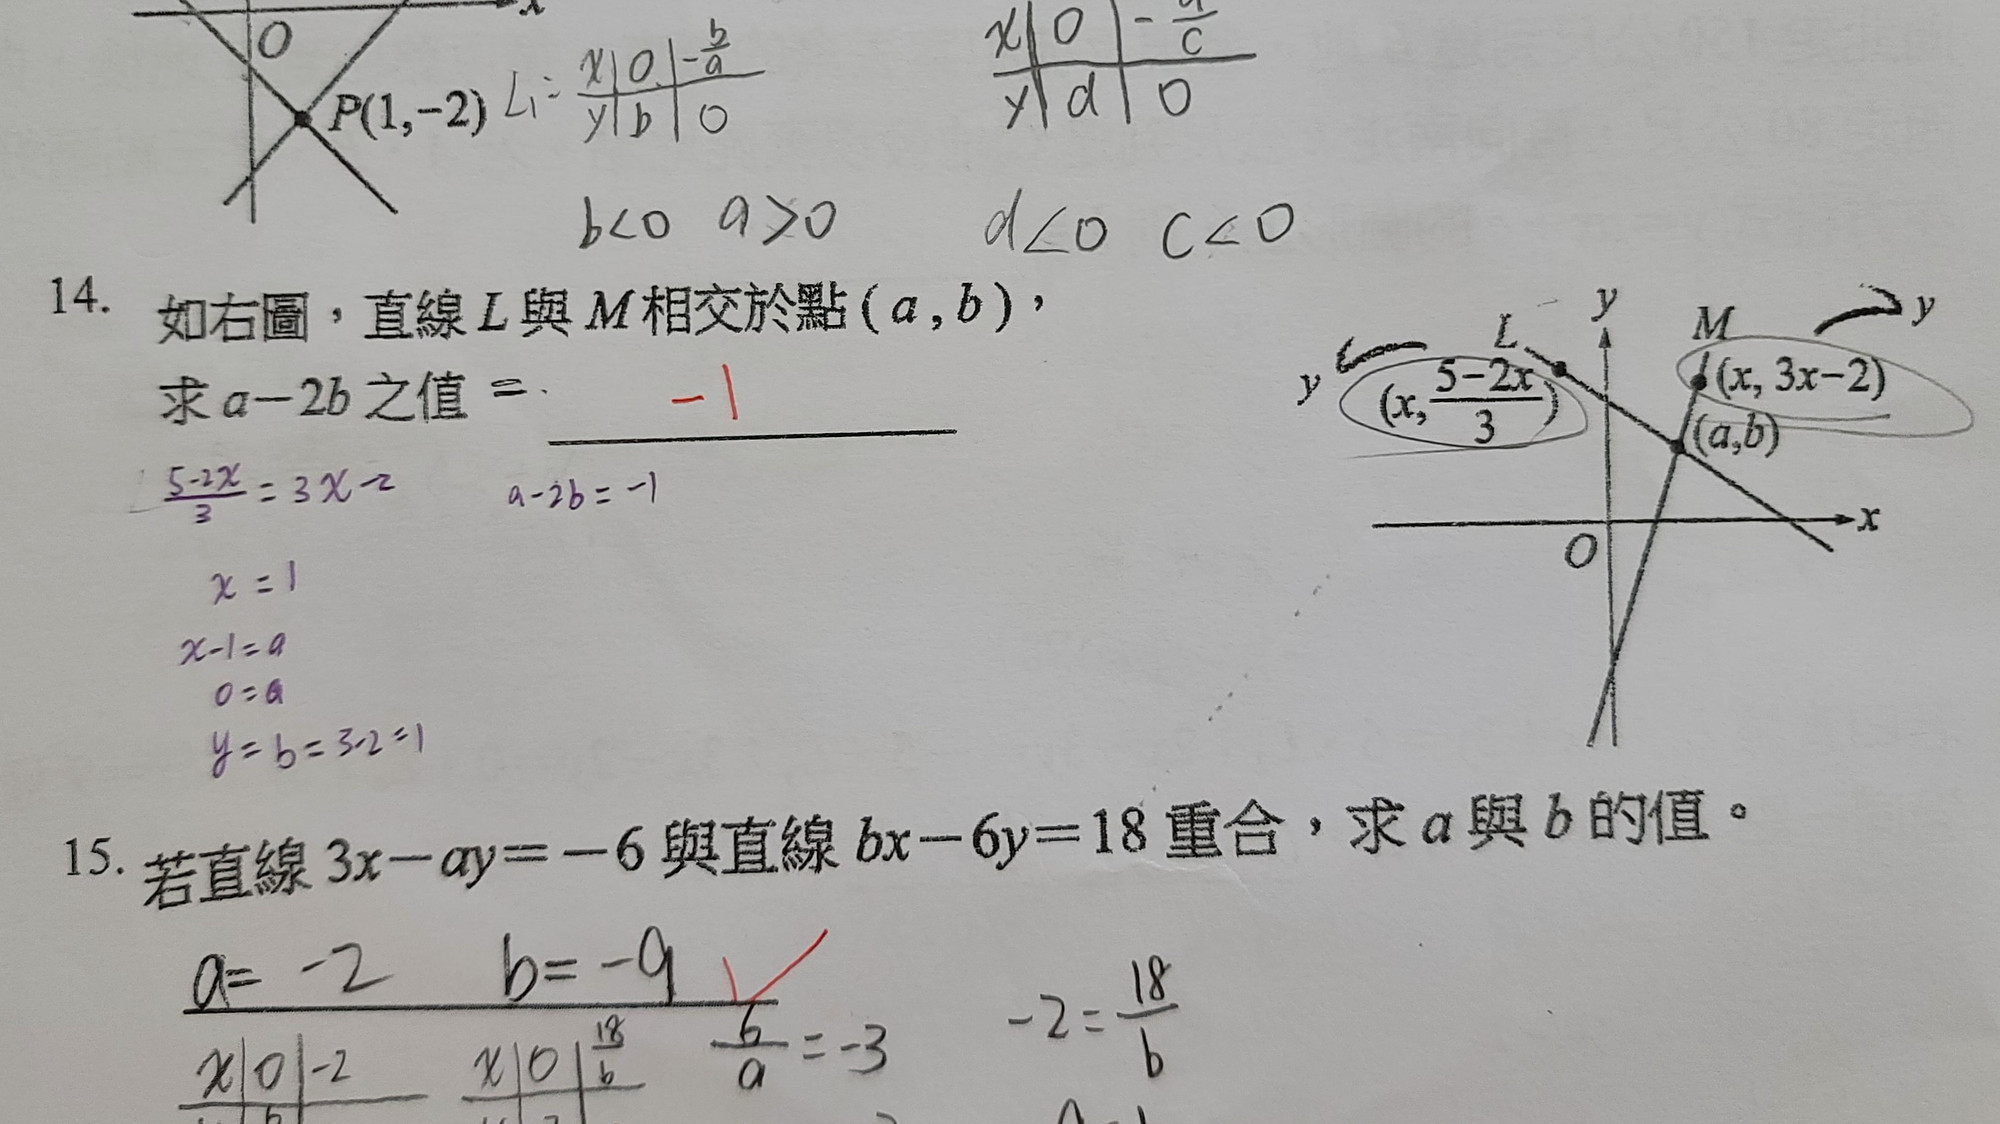 x
O
P(1,−2)
L₁=
x | 0 | -b/a
y | b | 0
x | 0 | -d/c
y | d | 0
b<0 a>0
d<0 c<0
14. 如右圖，直線L與M相交於點(a,b)，
求a−2b之值 =
-1
(5-2x)/3 = 3x-2
a-2b=-1
x=1
x-1=a
0=a
y=b=3-2=1
y
L
M
y
y
(x, (5−2x)/3)
(x, 3x−2)
(a,b)
x
O
15. 若直線3x−ay=−6與直線bx−6y=18重合，求a與b的值。
a= -2 b= -9
x | 0 | -2
x | 0 | 18/b
6/a = -3
-2 = 18/b